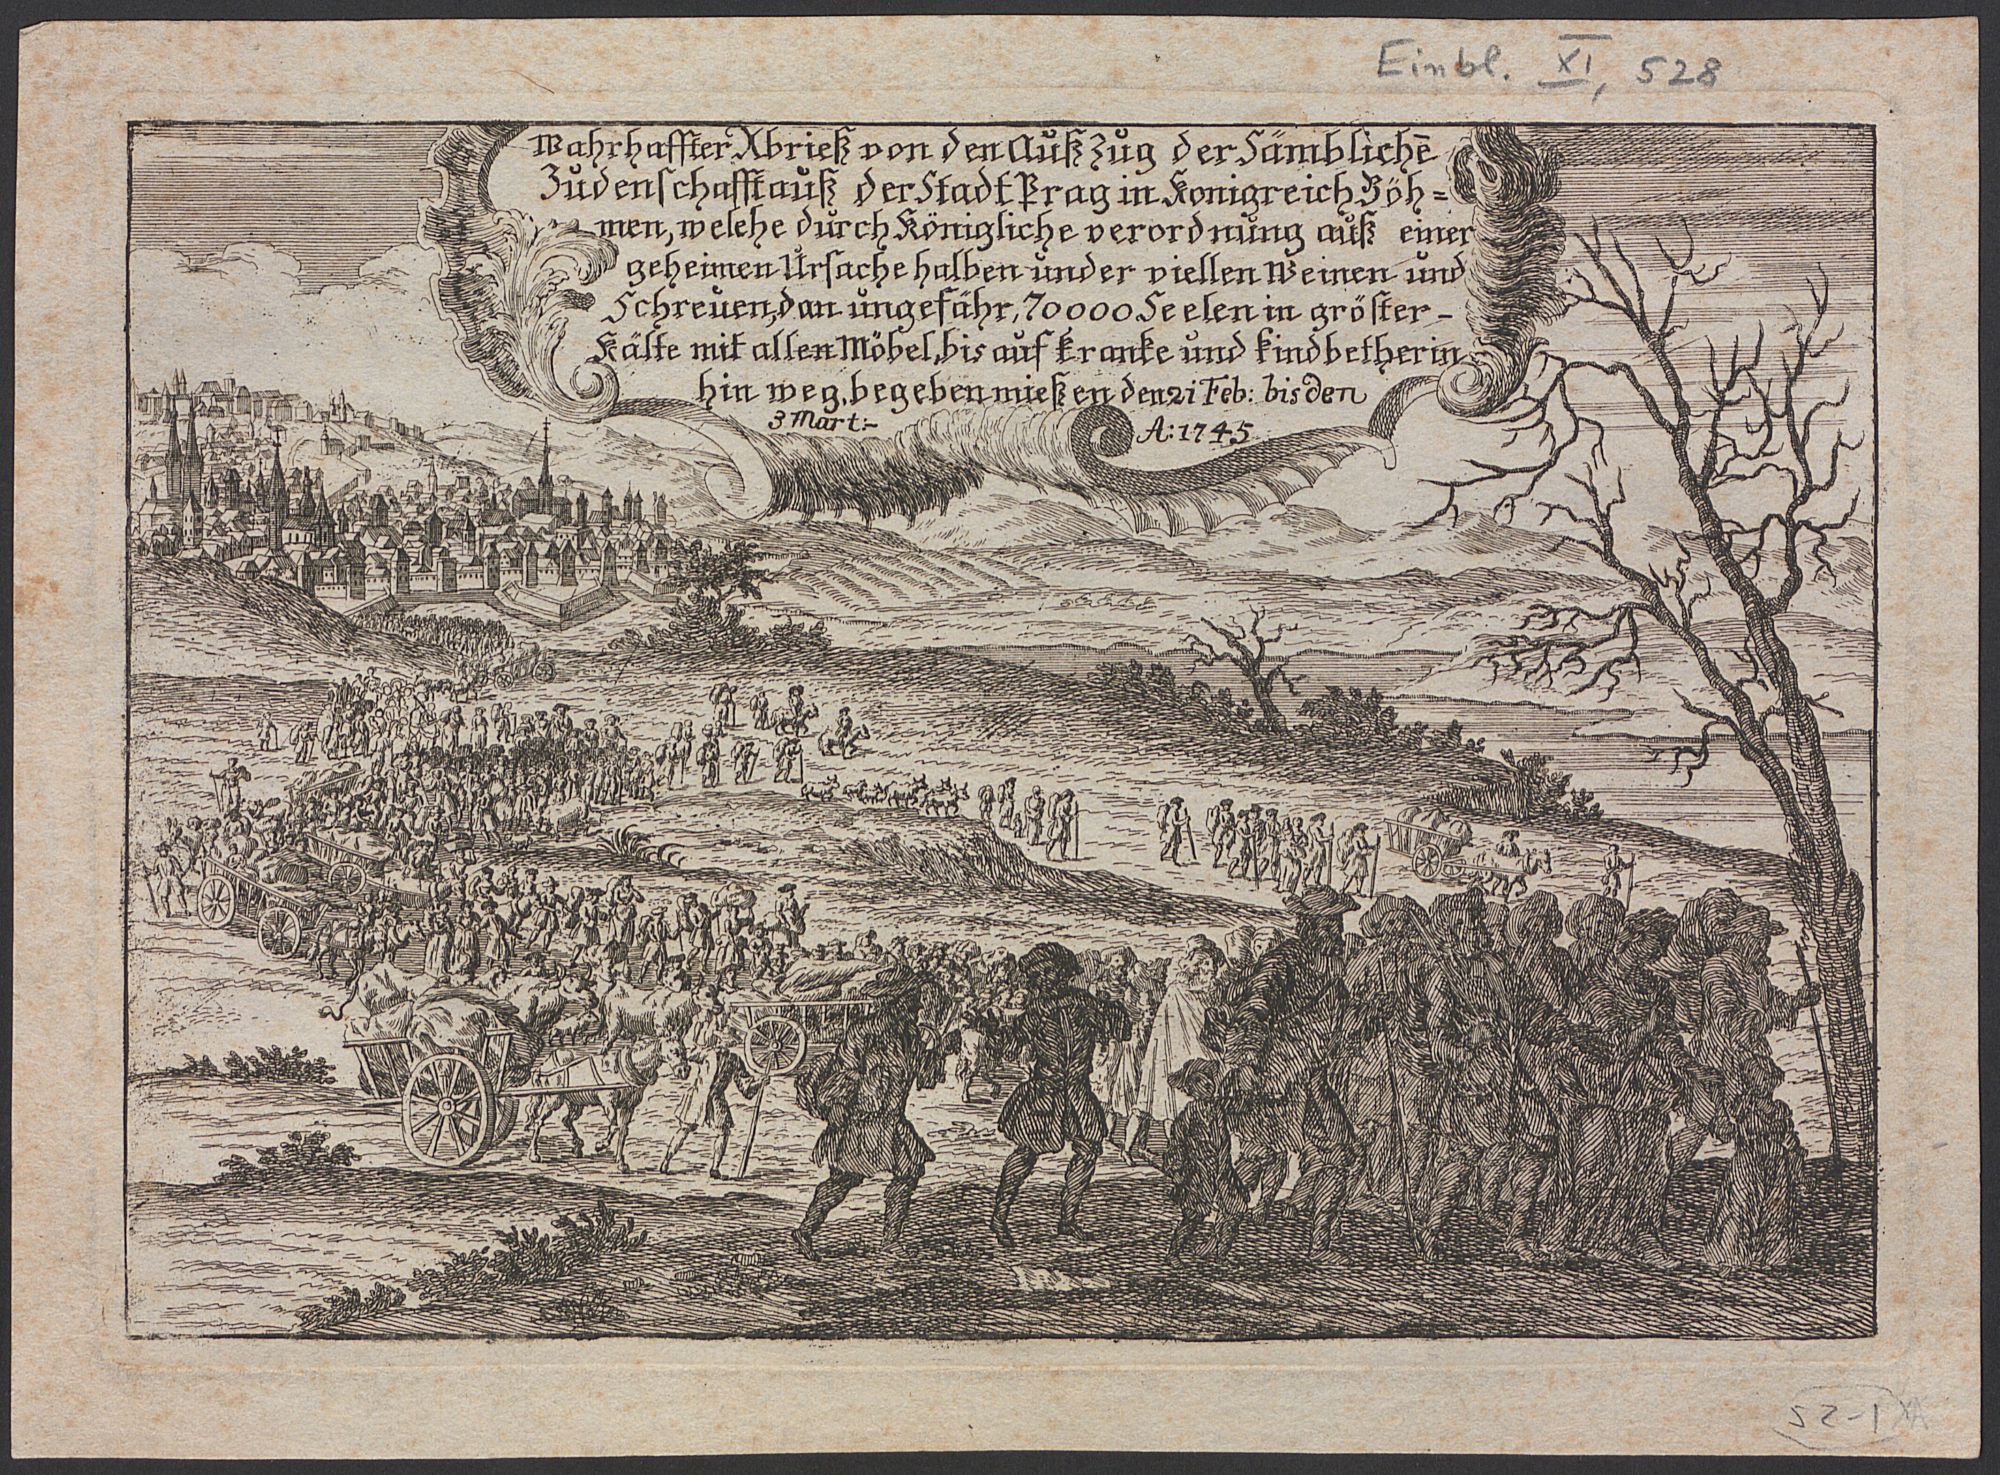 Einbl. XI, 528
Wahrhaffter Abrieß von den Auß Zug der Sämblichē
Judenschafft auß der Stadt Prag in Konigreich Böh=
men, welche durch Königliche verordnung auß einer
geheimen Ursache halben under viellen Weinen und
Schreuen, dan ungefähr, 70000 Seelen in gröster-
Kälte mit allen Möbel, bis auf kranke und kindbetherin
hin weg, begeben mießen den 21 Feb: bis den
3 Mart:- A: 1745